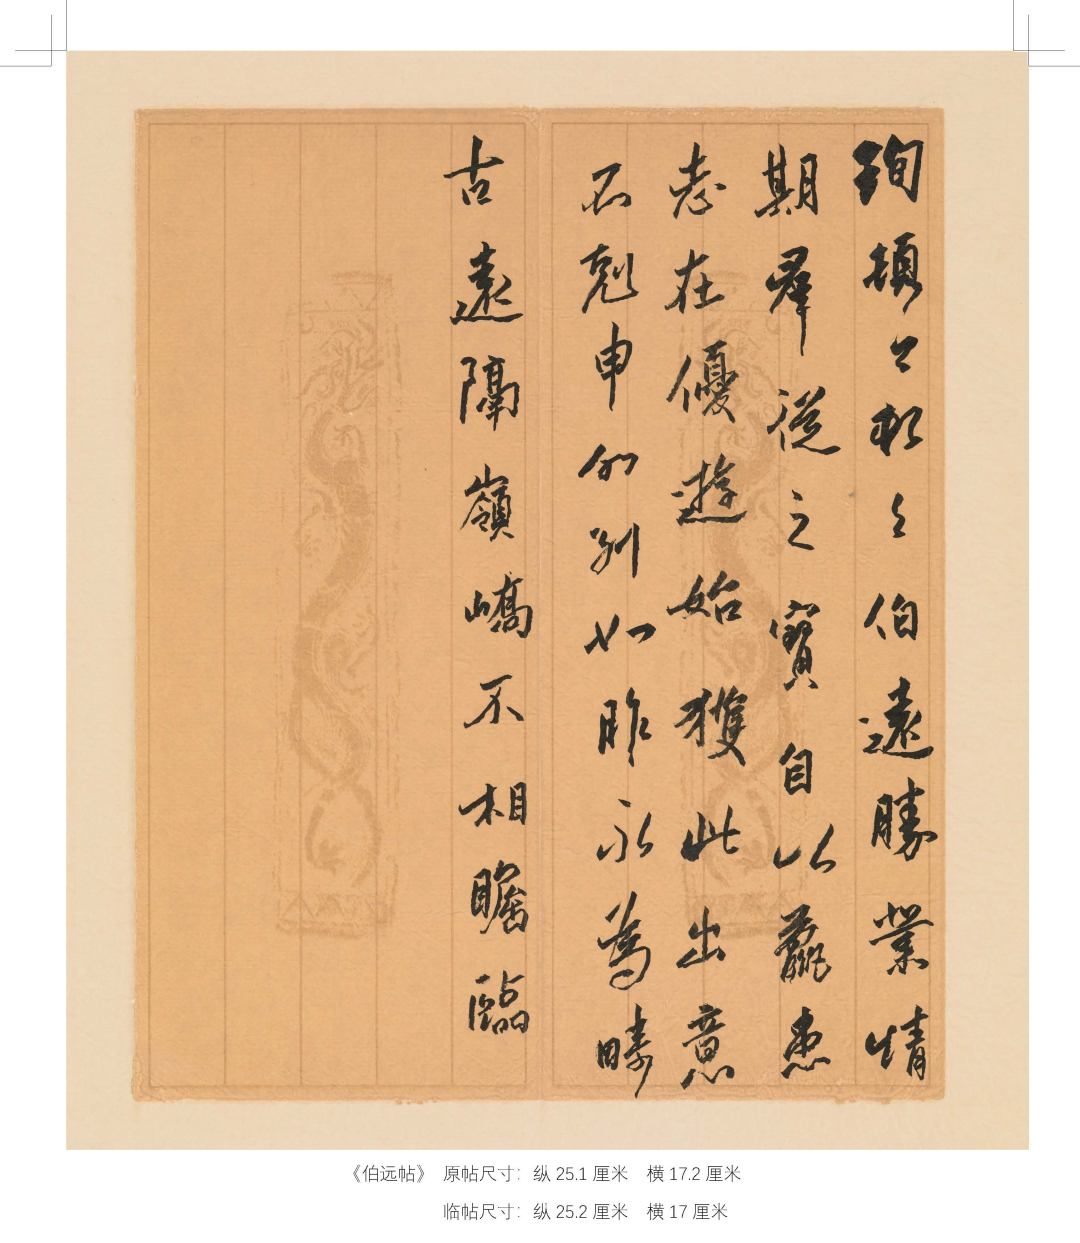 珣頓首頓首伯遠勝業情
期羣從之寶自以羸患
志在優遊始獲此出意
不剋申分別如昨永為疇
古遠隔嶺嶠不相瞻臨
《伯远帖》 原帖尺寸：纵 25.1 厘米 横 17.2 厘米
临帖尺寸：纵 25.2 厘米 横 17 厘米